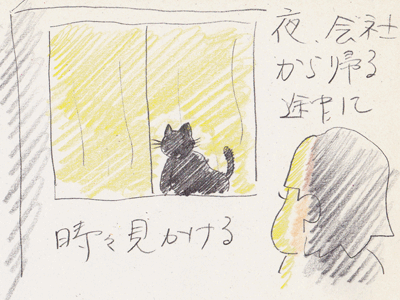 夜、会社
から帰る
途中に
時々見かける